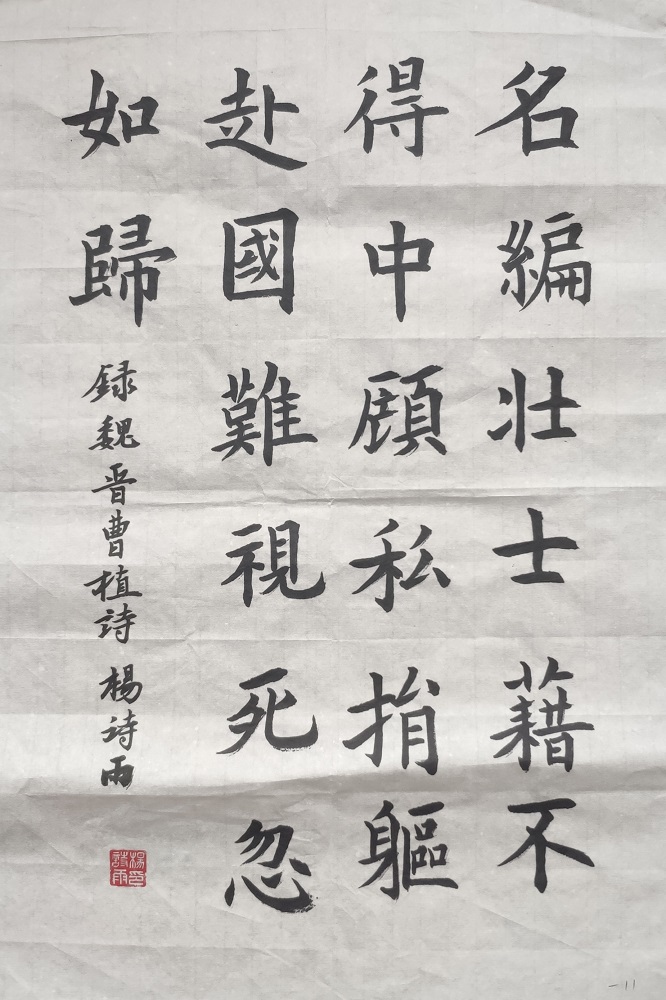 名編壮士藉不
得中顧私捐軀
赴國難視死忽
如歸
録魏晋曹植詩 楊詩雨
楊印詩雨
一11